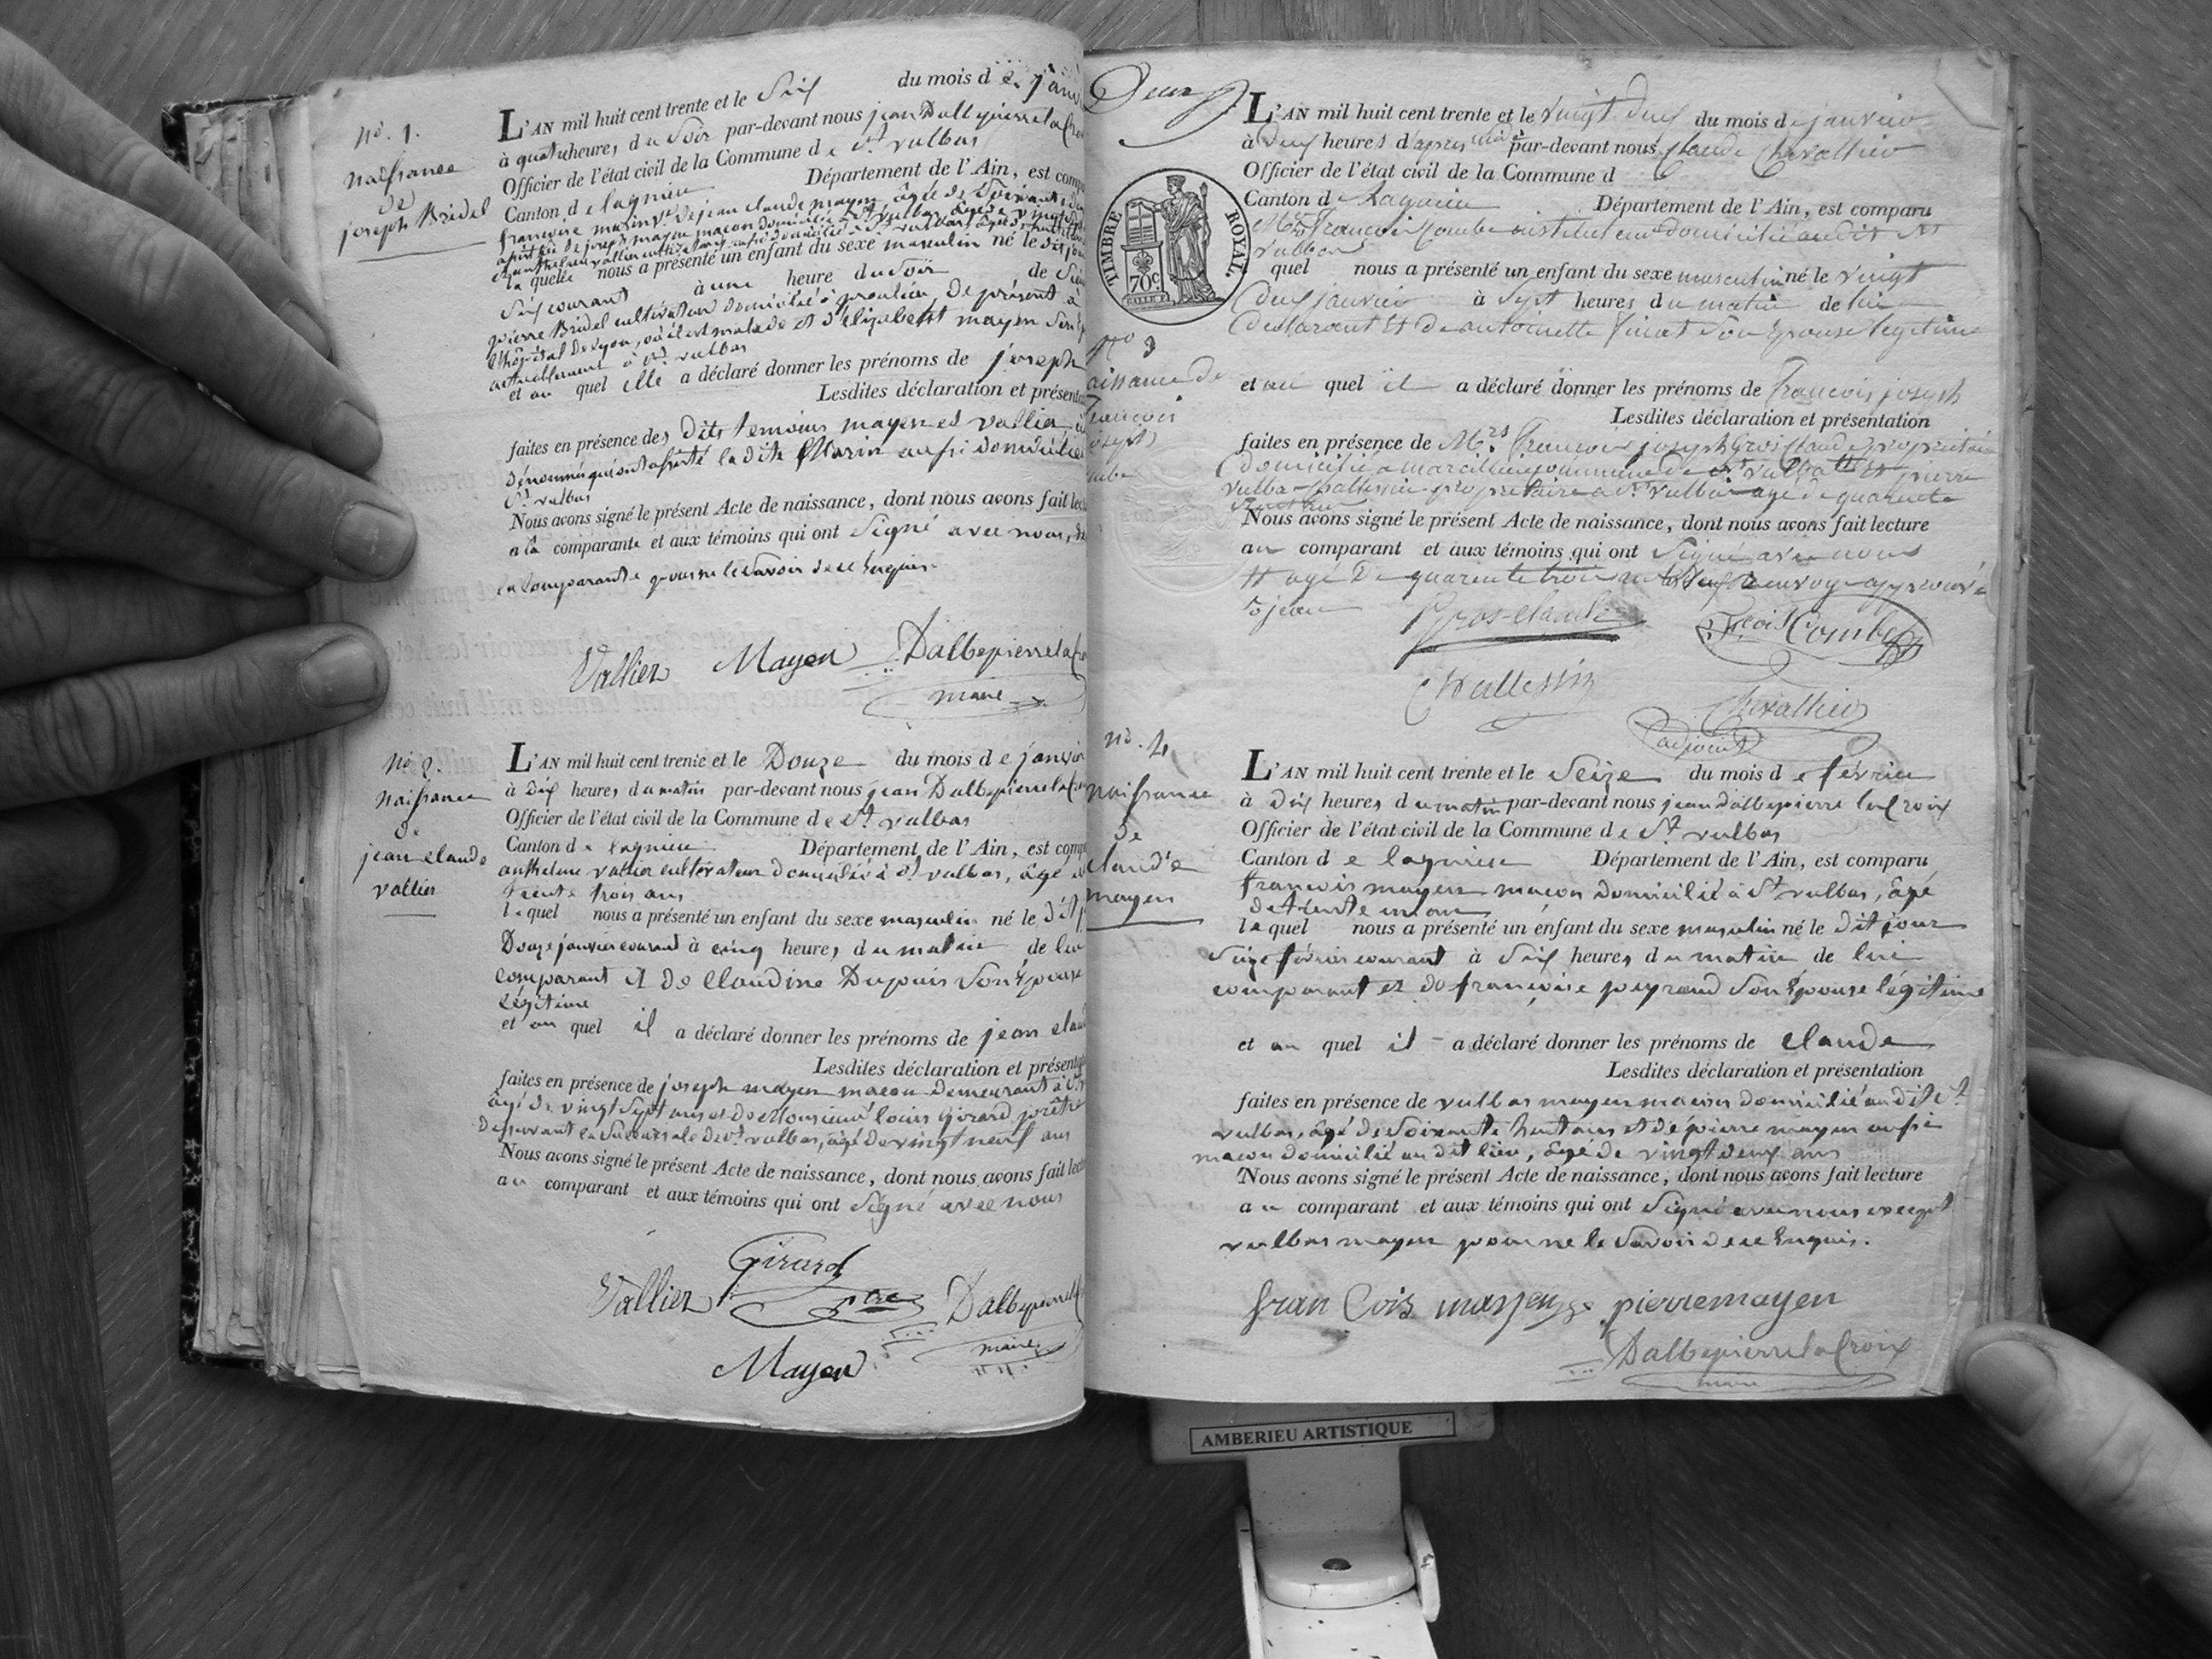 no. 1.
naissance
de
joseph Bridel
L'AN mil huit cent trente et le Six du mois de janv
à quatre heures du Soir par-devant nous jean Dalbepierre lacro
Officier de l'état civil de la Commune de St. vulbas
Canton de lagnieu Département de l'Ain, est comp
francoise marin ve de jean claude mayen âgée de Soixante
la quelle nous a présenté un enfant du sexe masculin né le dit jour
Six courant à une heure du Soir de
pierre Bridel cultivateur domicilié à proulieu De présent à
l'hôpital De Lyon, où il est malade et d'Elizabeth mayen Son
actuellement à St. vulbas
et au quel elle a déclaré donner les prénoms de joseph
Lesdites déclaration et présent
faites en présence des Dits temoins mayen et vallier
dénommé qui ont assisté la dite Marin aussi domiciliée
St. vulbas
Nous avons signé le présent Acte de naissance, dont nous avons fait lec
a la comparante et aux témoins qui ont Signé avec nous,
la Comparante pour ne le Savoir de ce Enquise.
Vallier Mayen Dalbepierre lacro
maire
no 2.
naissance
de
jean claude
vallier
L'AN mil huit cent trente et le Douze du mois de janvier
à Dix heures du matin par-devant nous jean Dalbepierre lacro
Officier de l'état civil de la Commune de St. vulbas
Canton de lagnieu Département de l'Ain, est comp
anthelme vallier cultivateur domicilié à St. vulbas, âgé de
trente trois ans
le quel nous a présenté un enfant du sexe masculin né le Dit j
Douze janvier courant à cinq heures du matin de lui
comparant et de Claudine Dupuis Son Epouse
légitime
et au quel il a déclaré donner les prénoms de jean clau
Lesdites déclaration et présent
faites en présence de joseph mayen macon Demeurant à St
âgé de vingt Sept ans et de Monsieur louis Girard prêtre
Desservant la Succursale de St. vulbas, âgé de vingt neuf ans
Nous avons signé le présent Acte de naissance, dont nous avons fait lect
au comparant et aux témoins qui ont Signé avec nous
Girard
Vallier ptre Dalbepierrela
maire
Mayen
Deux
TIMBRE ROYAL.
70c.
L'AN mil huit cent trente et le vingt deux du mois de janvier
à Deux heures d'après midi par-devant nous Claude Chevallier
Officier de l'état civil de la Commune d
Canton de Lagnieu Département de l'Ain, est comparu
Mr. Francois Combe instituteur domicilié audit St
vulbas
quel nous a présenté un enfant du sexe masculin né le vingt
deux janvier à Sept heures du matin de lui
Declarant Et de antoinette Son Epouse legitime
no 3
aissance de
francois
oseph
mbe
et au quel il a déclaré donner les prénoms de Francois joseph
Lesdites déclaration et présentation
faites en présence de Mrs. Francois joseph Gros Claude proprietaire
Domicilié a marcillieu commune de St. vulbas et pierre
vulba Chaltessin proprietaire a St. vulbas age de quarente
Nous avons signé le présent Acte de naissance, dont nous avons fait lecture
au comparant et aux témoins qui ont Signé avec nous
agé De quarente trois renvoy approuvé
Gros-claude Fcois Combe
Chevallier
adjoint
no. 4
naissance
de
Claude
mayen
L'AN mil huit cent trente et le Seize du mois de février
à Dix heures du matin par-devant nous jean dalbepierre la Croix
Officier de l'état civil de la Commune de St. vulbas
Canton de lagnieu Département de l'Ain, est comparu
francois mayen maçon Domicilié à St. vulbas, âgé
de trente un ans
le quel nous a présenté un enfant du sexe masculin né le Dit jour
Seize février courant à Six heures du matin de lui
comparant et de françoise peyraud Son Epouse légitime
et au quel il a déclaré donner les prénoms de Claude
Lesdites déclaration et présentation
faites en présence de vulbas mayen macon domicilié au dit St.
vulbas, âgé de Soixante huit ans et de pierre mayen aussi
macon domicilié au dit lieu, âgé de vingt deux ans
Nous avons signé le présent Acte de naissance, dont nous avons fait lecture
au comparant et aux témoins qui ont Signé avec nous except
vulbas mayen pour ne le Savoir de ce Enquis.
fran Cois mayen pierre mayen
Dalbepierre la Croix
maire
AMBERIEU ARTISTIQUE